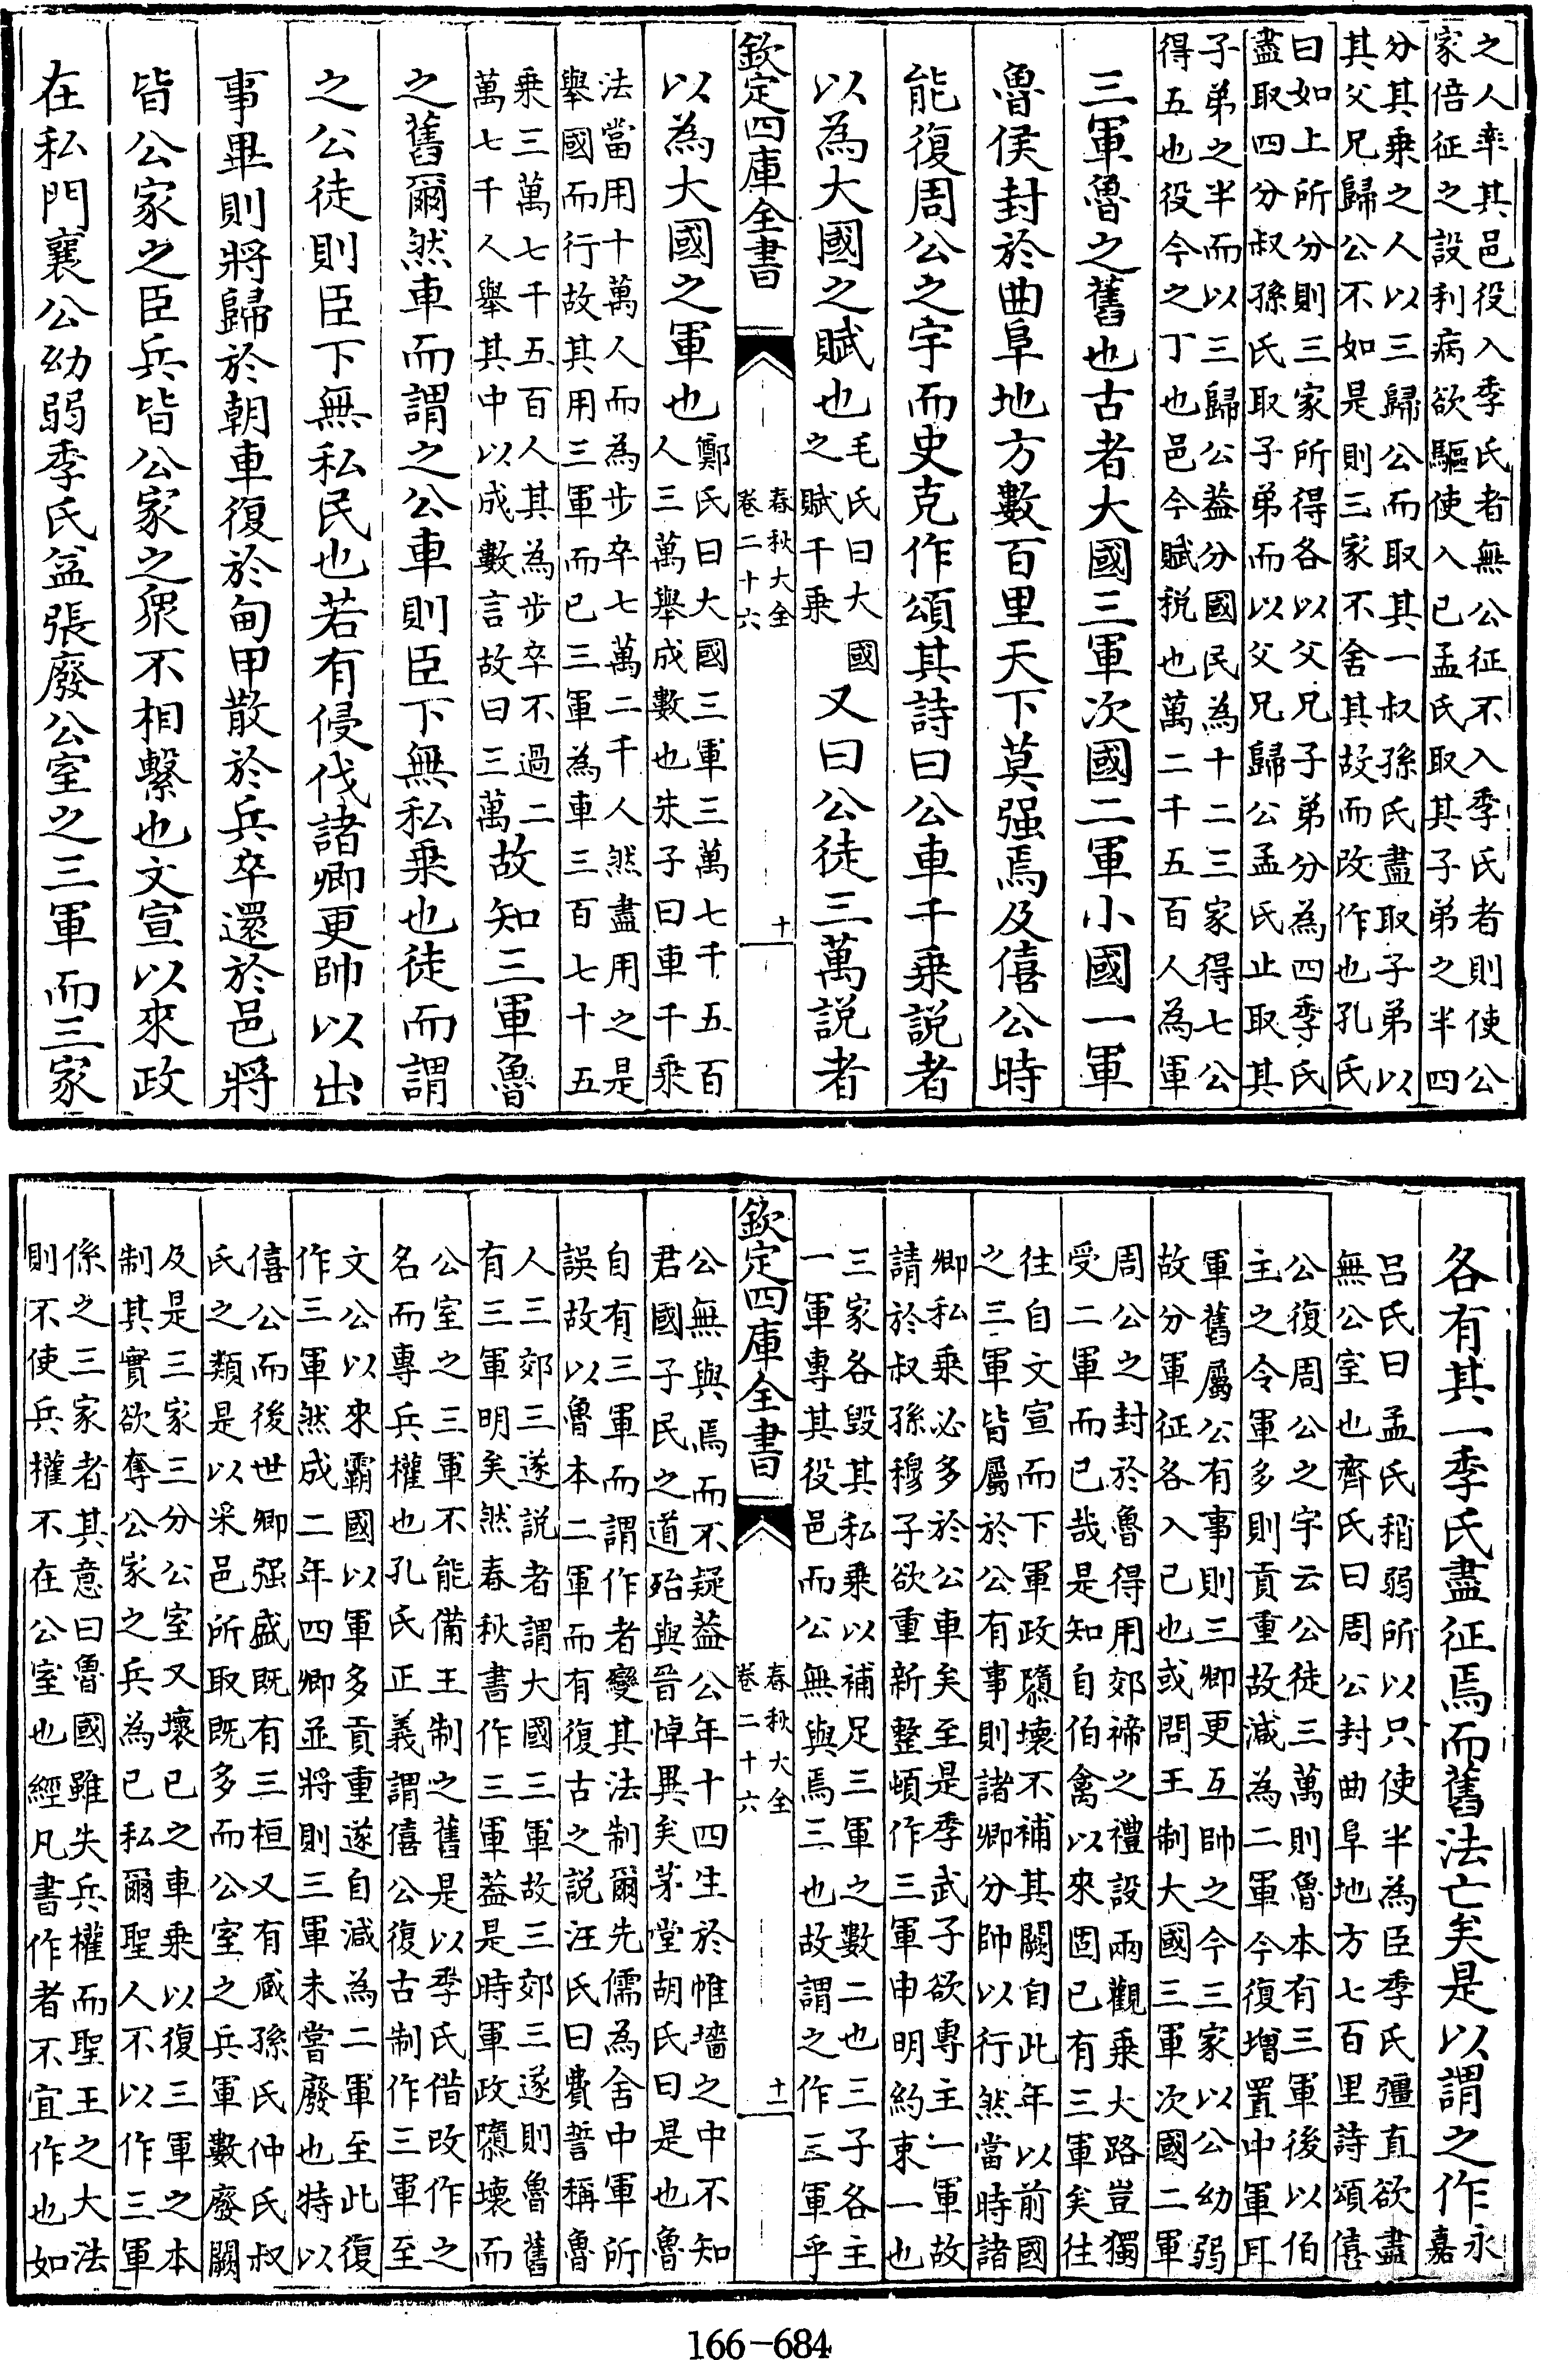 之人率其邑役入季氏者無公征不入季氏者則使公
家倍征之設利病欲驅使入己孟氏取其子弟之半四
分其乗之人以三歸公而取其一叔孫氏盡取子弟以
其父兄歸公不如是則三家不舍其故而改作也孔氏
曰如上所分則三家所得各以父兄子弟分為四季氏
盡取四分叔孫氏取子弟而以父兄歸公孟氏止取其
子弟之半而以三歸公益分國民為十二三家得七公
得五也役今之丁也邑今賦税也萬二千五百人為軍
三軍魯之舊也古者大國三軍次國二軍小國一軍
魯侯封於曲阜地方數百里天下莫强焉及僖公時
能復周公之宇而史克作頌其詩曰公車千乗説者
以為大國之賦也毛氏曰大國之賦千乗又曰公徒三萬説者
欽定四庫全書
春秋大全
卷二十六
十
以為大國之軍也鄭氏曰大國三軍三萬七千五百人三萬舉成數也朱子曰車千乗
法當用十萬人而為步卒七萬二千人然盡用之是
舉國而行故其用三軍而已三軍為車三百七十五
乗三萬七千五百人其為步卒不過二萬七千人舉其中以成數言故曰三萬故知三軍魯
之舊爾然車而謂之公車則臣下無私乗也徒而謂
之公徒則臣下無私民也若有侵伐諸卿更帥以出
事畢則將歸於朝車復於甸甲散於兵卒還於邑將
皆公家之臣兵皆公家之衆不相繫也文宣以來政
在私門襄公幼弱季氏益張廢公室之三軍而三家
各有其一季氏盡征焉而舊法亡矣是以謂之作永嘉
吕氏曰孟氏稍弱所以只使半為臣季氏彊直欲盡
無公室也齊氏曰周公封曲阜地方七百里詩頌僖
公復周公之宇云公徒三萬則魯本有三軍後以伯
主之令軍多則貢重故減為二軍今復增置中軍耳
軍舊屬公有事則三卿更互帥之今三家以公幼弱
故分軍征各入己也或問王制大國三軍次國二軍
周公之封於魯得用郊禘之禮設兩觀乗大路豈獨
受二軍而已哉是知自伯禽以來固已有三軍矣往
往自文宣而下軍政隳壞不補其闕自此年以前國
之三軍皆屬於公有事則諸卿分帥以行然當時諸
卿私乗必多於公車矣至是季武子欲專主一軍故
請於叔孫穆子欲重新整頓作三軍申明約束一也
三家各毁其私乗以補足三軍之數二也三子各主
一軍專其役邑而公無與焉三也故謂之作三軍乎
欽定四庫全書
春秋大全
卷二十六
十一
公無與焉而不疑益公年十四生於帷墻之中不知
君國子民之道殆與晉悼異矣茅堂胡氏曰是也魯
自有三軍而謂作者變其法制爾先儒為舍中軍所
誤故以魯本二軍而有復古之説汪氏曰費誓稱魯
人三郊三遂説者謂大國三軍故三郊三遂則魯舊
有三軍明矣然春秋書作三軍葢是時軍政隳壞而
公室之三軍不能備王制之舊是以季氏借改作之
名而專兵權也孔氏正義謂僖公復古制作三軍至
文公以來霸國以軍多貢重遂自減為二軍至此復
作三軍然成二年四卿並將則三軍未嘗廢也特以
僖公而後世卿强盛既有三桓又有臧孫氏仲氏叔
氏之類是以采邑所取既多而公室之兵軍數廢闕
及是三家三分公室又壞己之車乗以復三軍之本
制其實欲奪公家之兵為己私爾聖人不以作三軍
係之三家者其意曰魯國雖失兵權而聖王之大法
則不使兵權不在公室也經凡書作者不宜作也如
166-684